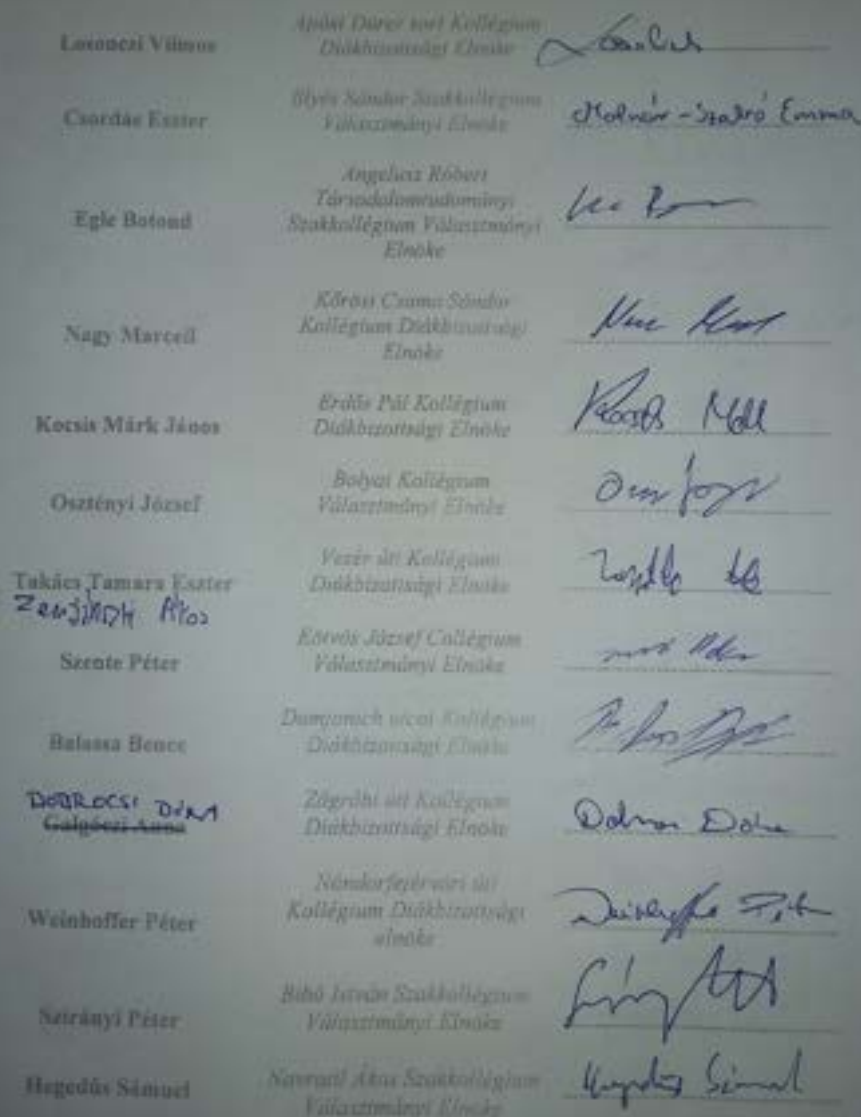 Losonczi Vilmos
Ajtósi Dürer sori Kollégium
Diákbizottsági Elnöke
Csordás Eszter
Illyés Sándor Szakkollégium
Választmányi Elnöke
Molnár-Szabó Emma
Egle Botond
Angelusz Róbert
Társadalomtudományi
Szakkollégium Választmányi
Elnöke
Nagy Marcell
Kőrösi Csoma Sándor
Kollégium Diákbizottsági
Elnöke
Kocsis Márk János
Erdős Pál Kollégium
Diákbizottsági Elnöke
Osztényi József
Bolyai Kollégium
Választmányi Elnöke
Takács Tamara Eszter
Vezér úti Kollégium
Diákbizottsági Elnöke
Ákos
Szente Péter
Eötvös József Collégium
Választmányi Elnöke
Balassa Bence
Damjanich utcai Kollégium
Diákbizottsági Elnöke
DOBROCSI DÓRA
Galgóczi Anna
Zágrábi úti Kollégium
Diákbizottsági Elnöke
Weinhoffer Péter
Nándorfejérvári úti
Kollégium Diákbizottsági
elnöke
Szirányi Péter
Bibó István Szakkollégium
Választmányi Elnöke
Hegedűs Sámuel
Navratil Ákos Szakkollégium
Választmányi Elnöke
Hegedűs Sámuel